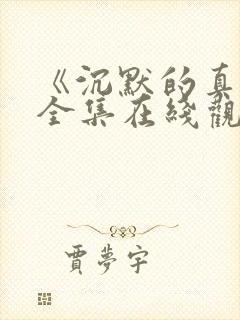 《沉默的真
全集在綫觀
賈夢宇